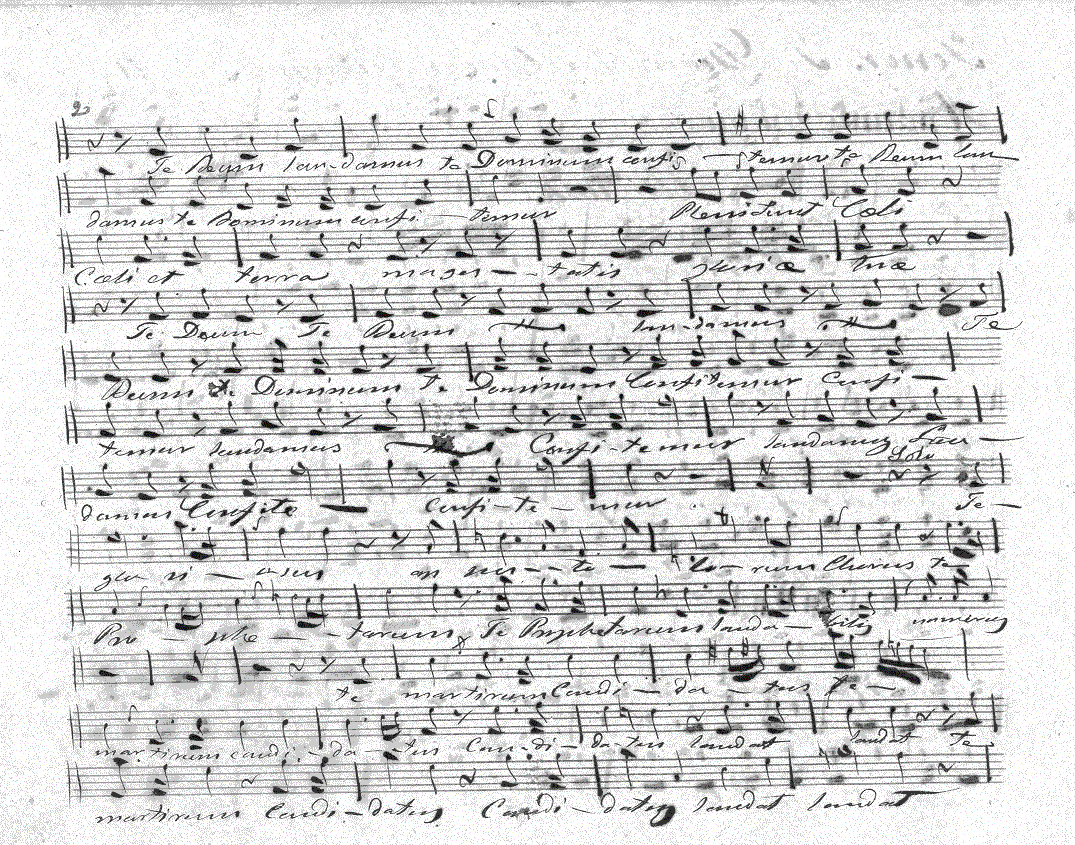 2
Te Deum lau-damus te Dominum confi - temur te Deum lau
damus te Dominum confi - temur Pleni sunt Cœli
Cæli et terra majes - tatis gloriæ tuæ
Te Deum Te Deum lau-damus Te
Deum te Dominum Te Dominum Confitemur Confi -
temur laudamus Confi-temur laudamus Lau -
Solo
damus Confite confi-te - mur Te -
glo ri - osus apos - to - lo - rum Chorus te
Pro - phe - tarum Te Prophetarum lauda - bilis numerus
te martirum Candi - da - tus te -
martirum candi - da - tus Can-di - da-tus laudat laudat te
martirum Candi-datus Candi-datus laudat laudat